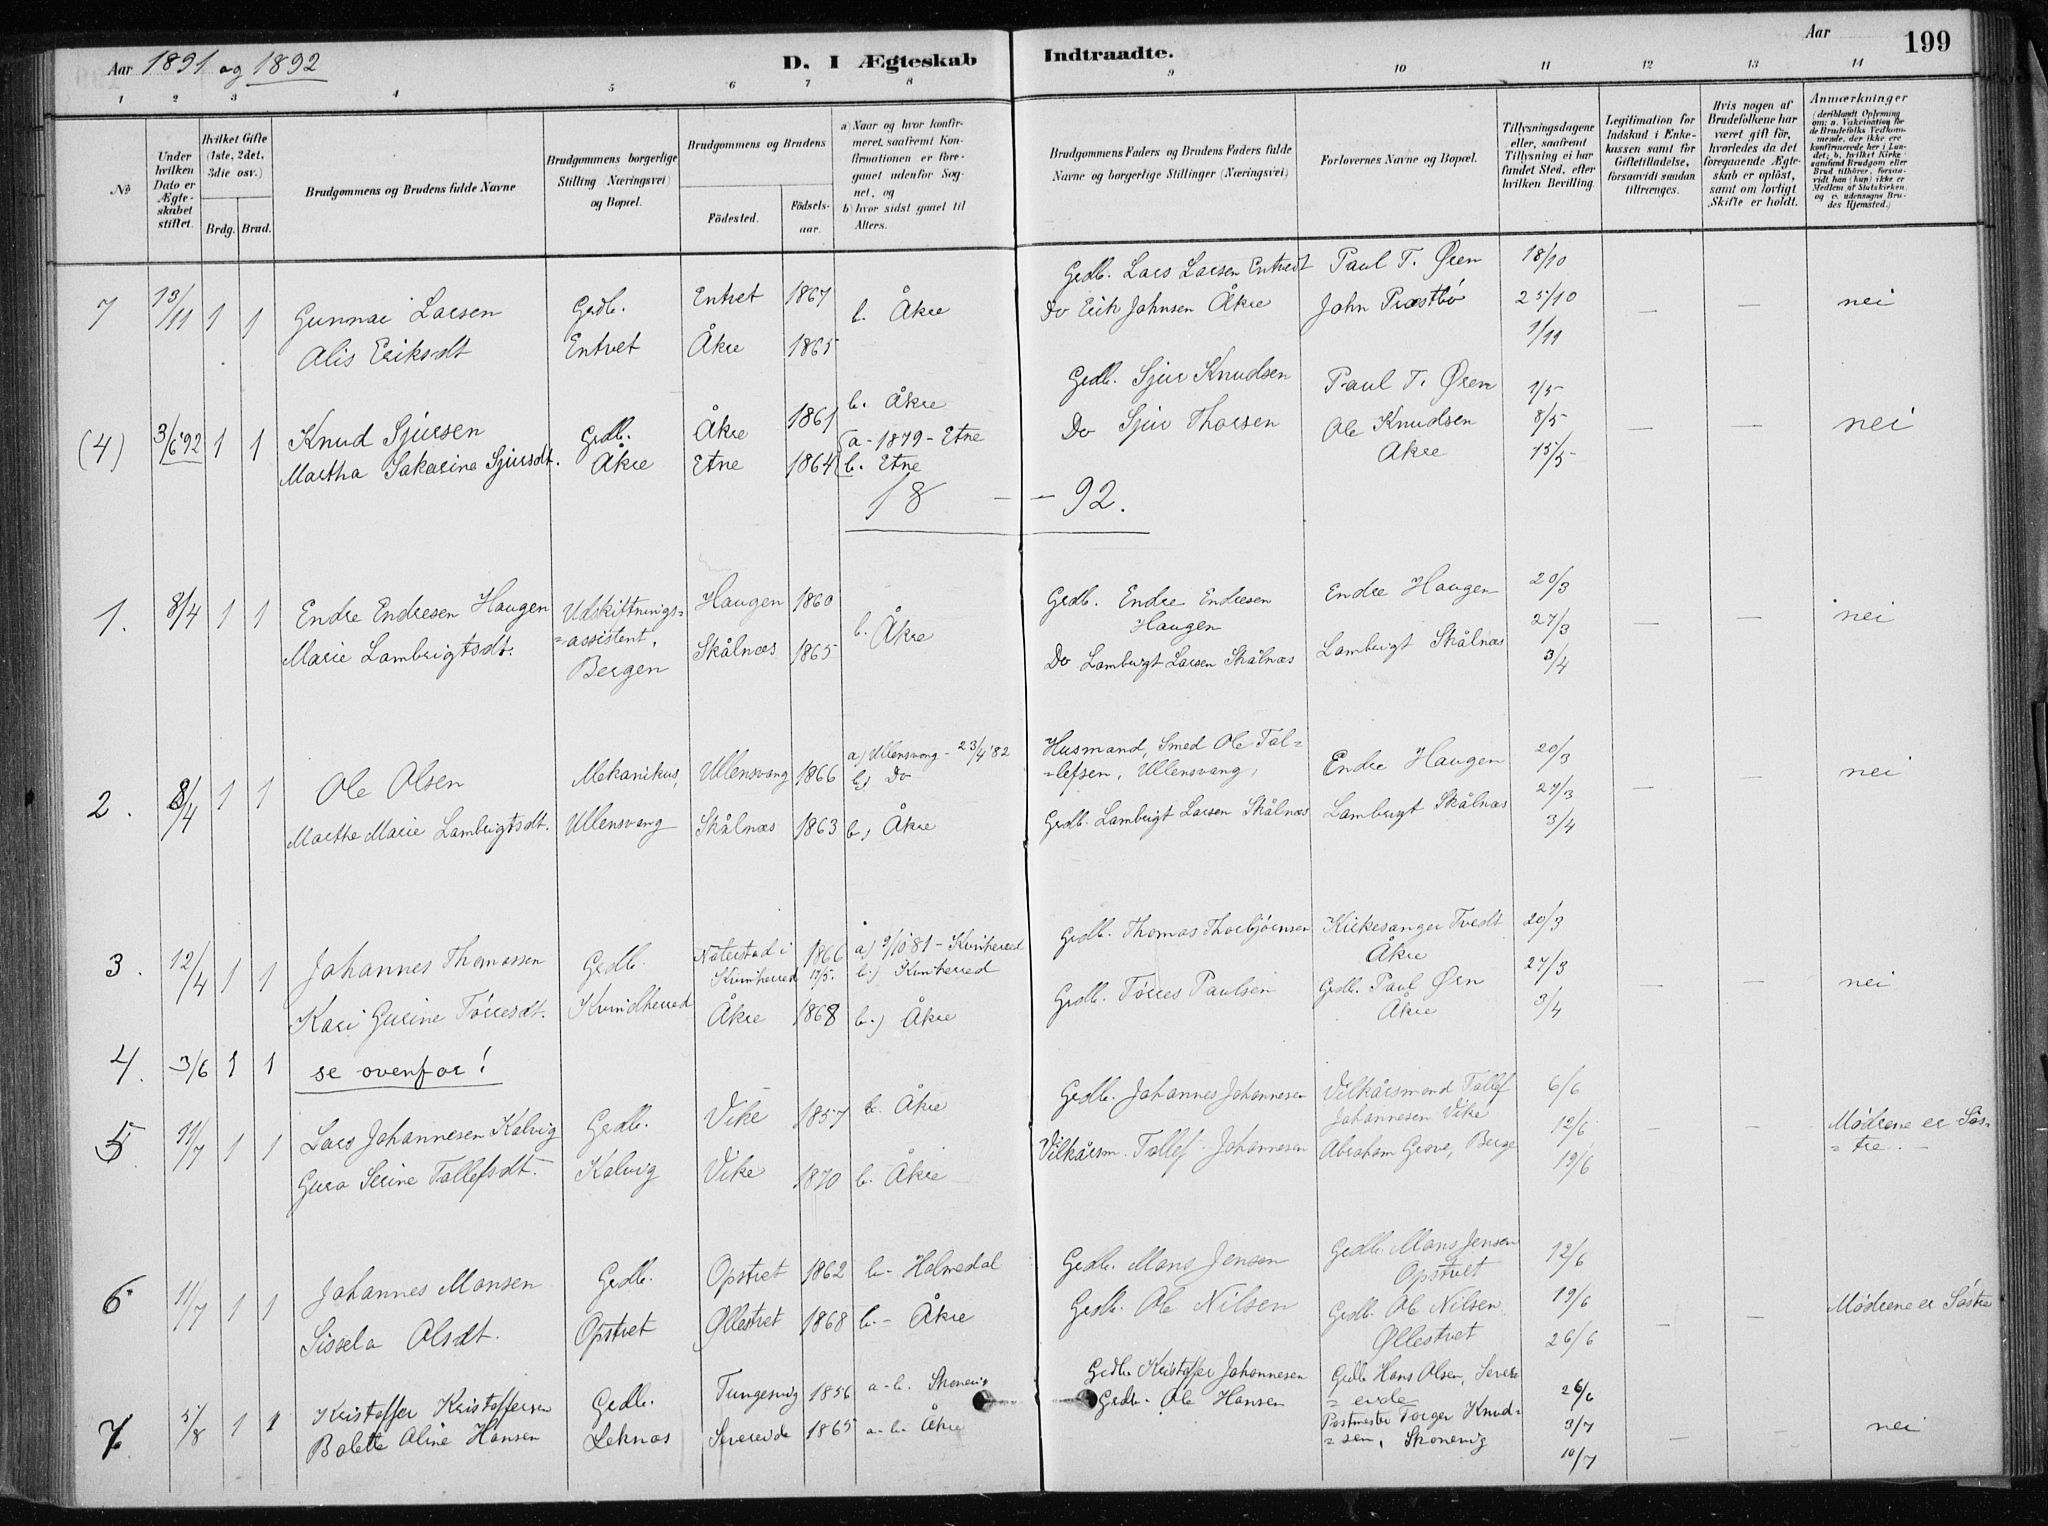 Aar 1891 og 1892
D. I Ægteskab Indtraadte.
Aar
199
1 2 3 4 5 6 7 8 9 10 11 12 13 14
No
Under hvilken Dato er Ægteskabet stiftet.
Hvilket Gifte (1ste, 2det, 3die osv.)
Brdg. Brud.
Brudgommens og Brudens fulde Navne
Brudgommens borgerlige Stilling (Næringsvei) og Bopæl.
Brudgommens og Brudens
Födested. Födselsaar.
a) Naar og hvor konfirmeret, saafremt Konfirmationen er foregaaet udenfor Sognet, og
b) hvor sidst gaaet til Alters.
Brudgommens Faders og Brudens Faders fulde Navne og borgerlige Stillinger (Næringsvei)
Forlovernes Navne og Bopæl.
Tillysningsdagene eller, saafremt Tillysning ei har fundet Sted, efter hvilken Bevilling.
Legitimation for Indskud i Enkekassen samt for Giftetilladelse, forsaavidt saadan tiltrænges.
Hvis nogen af Brudefolkene har været gift för, hvorledes da det foregaaende Ægteskab er oplöst, samt om lovligt Skifte er holdt.
Anmærkninger (deriblandt Oplysning om: a. Vakcination for de Brudefolks Vedkommende, der ikke ere konfirmerede her i Landet; b. hvilket Kirkesamfund Brudgom eller Brud tilhörer, forsaavidt han (hun) ikke er Medlem af Statskirken, og c. udensogns Brudes Hjemsted.)
7 13/11 1 1 Gunnar Larsen Grdb. Entvet 1867 b. Åkre Grdb. Lars Larsen Entvedt Paul T. Øren 18/10 — — nei
Alis Eriksdt Entvet Åkre 1865 Do Erik Johnsen Åkre John Præstbö 25/10
1/11
(4) 3/6 '92 1 1 Knud Sjursen Grdb. Åkre 1861 b. Åkre Grdb. Sjur Knudsen Paul T. Øren 1/5 — — nei
Martha Sakarina Sjursdt. Åkre Etne 1864 a - 1879 - Etne Do Sjur Thorsen Ole Knudsen 8/5
b. Etne Åkre 15/5
18 — — 92.
1. 8/4 1 1 Endre Endresen Haugen Udskiftnings= Haugen 1860 b. Åkre Grdb. Endre Endresen Endre Haugen 20/3 — — nei
=assistent, Haugen 27/3
Marie Lambrigtsdt. Bergen Skålnæs 1865 Do Lambrigt Larsen Skålnæs Lambrigt Skålnæs 3/4
2. 8/4 1 1 Ole Olsen Mekanikus, Ullensvang 1866 a) Ullensvang - 23/4 '82 Husmand, Smed Ole Tol= Endre Haugen 20/3 — — nei
b) Do =lefsen, Ullensvang, 27/3
Marthe Marie Lambrigtsdt. Ullensvang Skålnæs 1863 b, Åkre Grdb. Lambrigt Larsen Skålnæs Lambrigt Skålnæs 3/4
3. 12/4 1 1 Johannes Thomassen Grdb. Naterstad i 1866 a) 9/10 81 - Kvinherred Grdb. Thomas Thorbjörnsen Kirkesanger Tvedt 20/3 — — nei
Kvinherred 17/5. b.) Kvinherred Åkre 27/3
Kari Gurine Törresdt. Kvindherred Åkre 1868 b.) Åkre Grdb. Törres Paulsen Grdb. Paul Ørn 3/4
Åkre
4. 3/6 1 1 se ovenfor!
5 11/7 1 1 Lars Johannesen Kalvig Grdb. Vike 1857 b. Åkre Grdb. Johannes Johannesen Vilkårsmand Tollef 6/6 — — Mødrene er Sös=
Johannesen Vike 12/6 =tre. —
Guro Serine Tollefsdt. Kalvig Vike 1870 b. Åkre Vilkårsm. Tollef Johannesen Abraham Grove, Berge 19/6
6 11/7 1 1 Johannes Monsen Grdb. Opstvet 1862 b - Holmedal Grdb. Mons Jensen Grdb. Mons Jensen 12/6 — — Mødrene er Söstre
Opstvet 19/6
Sissela Olsdt. Opstvet Øllestvet 1868 b. - Åkre Grdb. Ole Nilsen Grdb. Ole Nilsen 26/6
Øllestvet
7. 5/8 1 1 Kristoffer Kristoffersen Grdb. Tungesvig 1856 a-b. Skonevig Grdb. Kristoffer Johannesen Grdb. Hans Olsen, Severe 26/6 — — nei
=eide
Bolette Oline Hansen Leknæs Severeide 1865 a-b. Åkre Grdb. Ole Hansen Postmester Torger Knud= 3/7
=sen, Skonevig 10/7